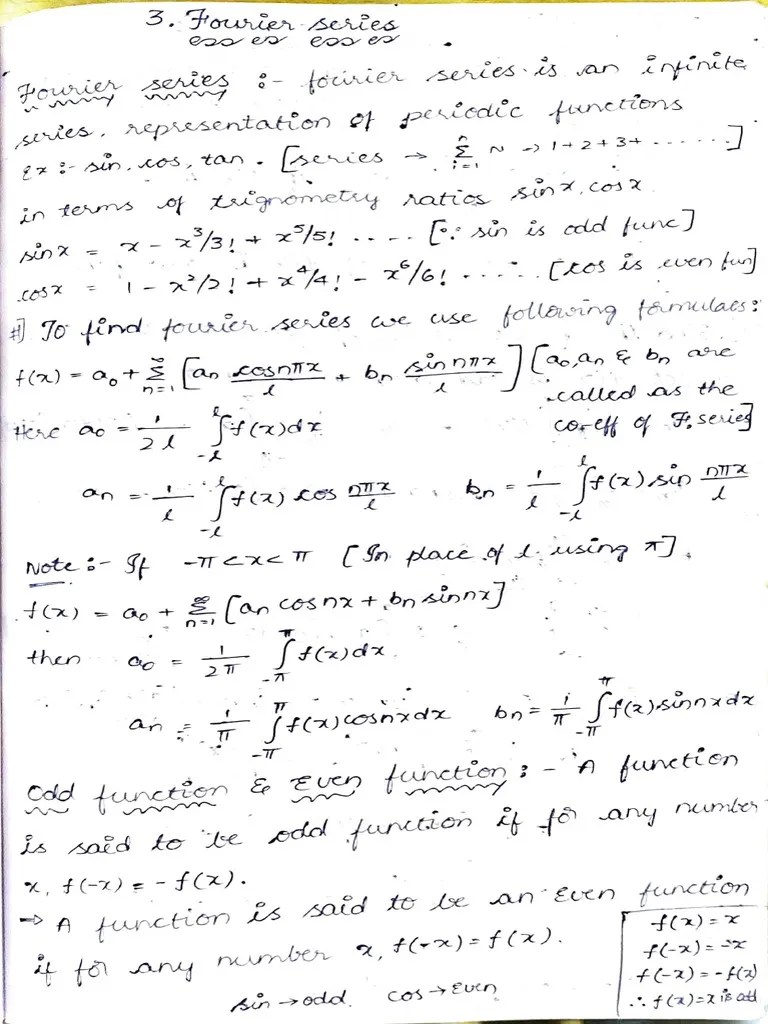 3. Fourier series
Fourier series :- fourier series is an infinite
series, representation of periodic functions
Ex :- sin, cos, tan. [series → n Σ i=1 N → 1+2+3+......]
in terms of trignometry ratios sinx, cosx
sinx = x - x³/3! + x⁵/5! ..... [∵ sin is odd func]
cosx = 1 - x²/2! + x⁴/4! - x⁶/6! ...... [cos is even fun]
#] To find fourier series we use following formulaes:
f(x) = a₀ + ∞ Σ n=1 [an cosnπx/l + bn sin nπx/l] [a₀, an & bn are
called as the
Here a₀ = 1/2l ∫_{-l}^{l} f(x)dx co-eff of F. series]
an = 1/l ∫_{-l}^{l} f(x) cos nπx/l , bn = 1/l ∫_{-l}^{l} f(x) sin nπx/l
Note :- If -π<x<π [In place of l using π].
f(x) = a₀ + ∞ Σ n=1 [an cosnx + bn sinnx]
then a₀ = 1/2π ∫_{-π}^{π} f(x)dx.
an = 1/π ∫_{-π}^{π} f(x)cosnxdx bn = 1/π ∫_{-π}^{π} f(x)sinnxdx
Odd function & Even function :- A function
is said to be odd function if for any number
x, f(-x) = - f(x).
→ A function is said to be an Even function
if for any number x, f(-x) = f(x).
sin → odd. cos → Even
f(x) = x
f(-x) = -x
f(-x) = -f(x)
∴ f(x)=x is odd